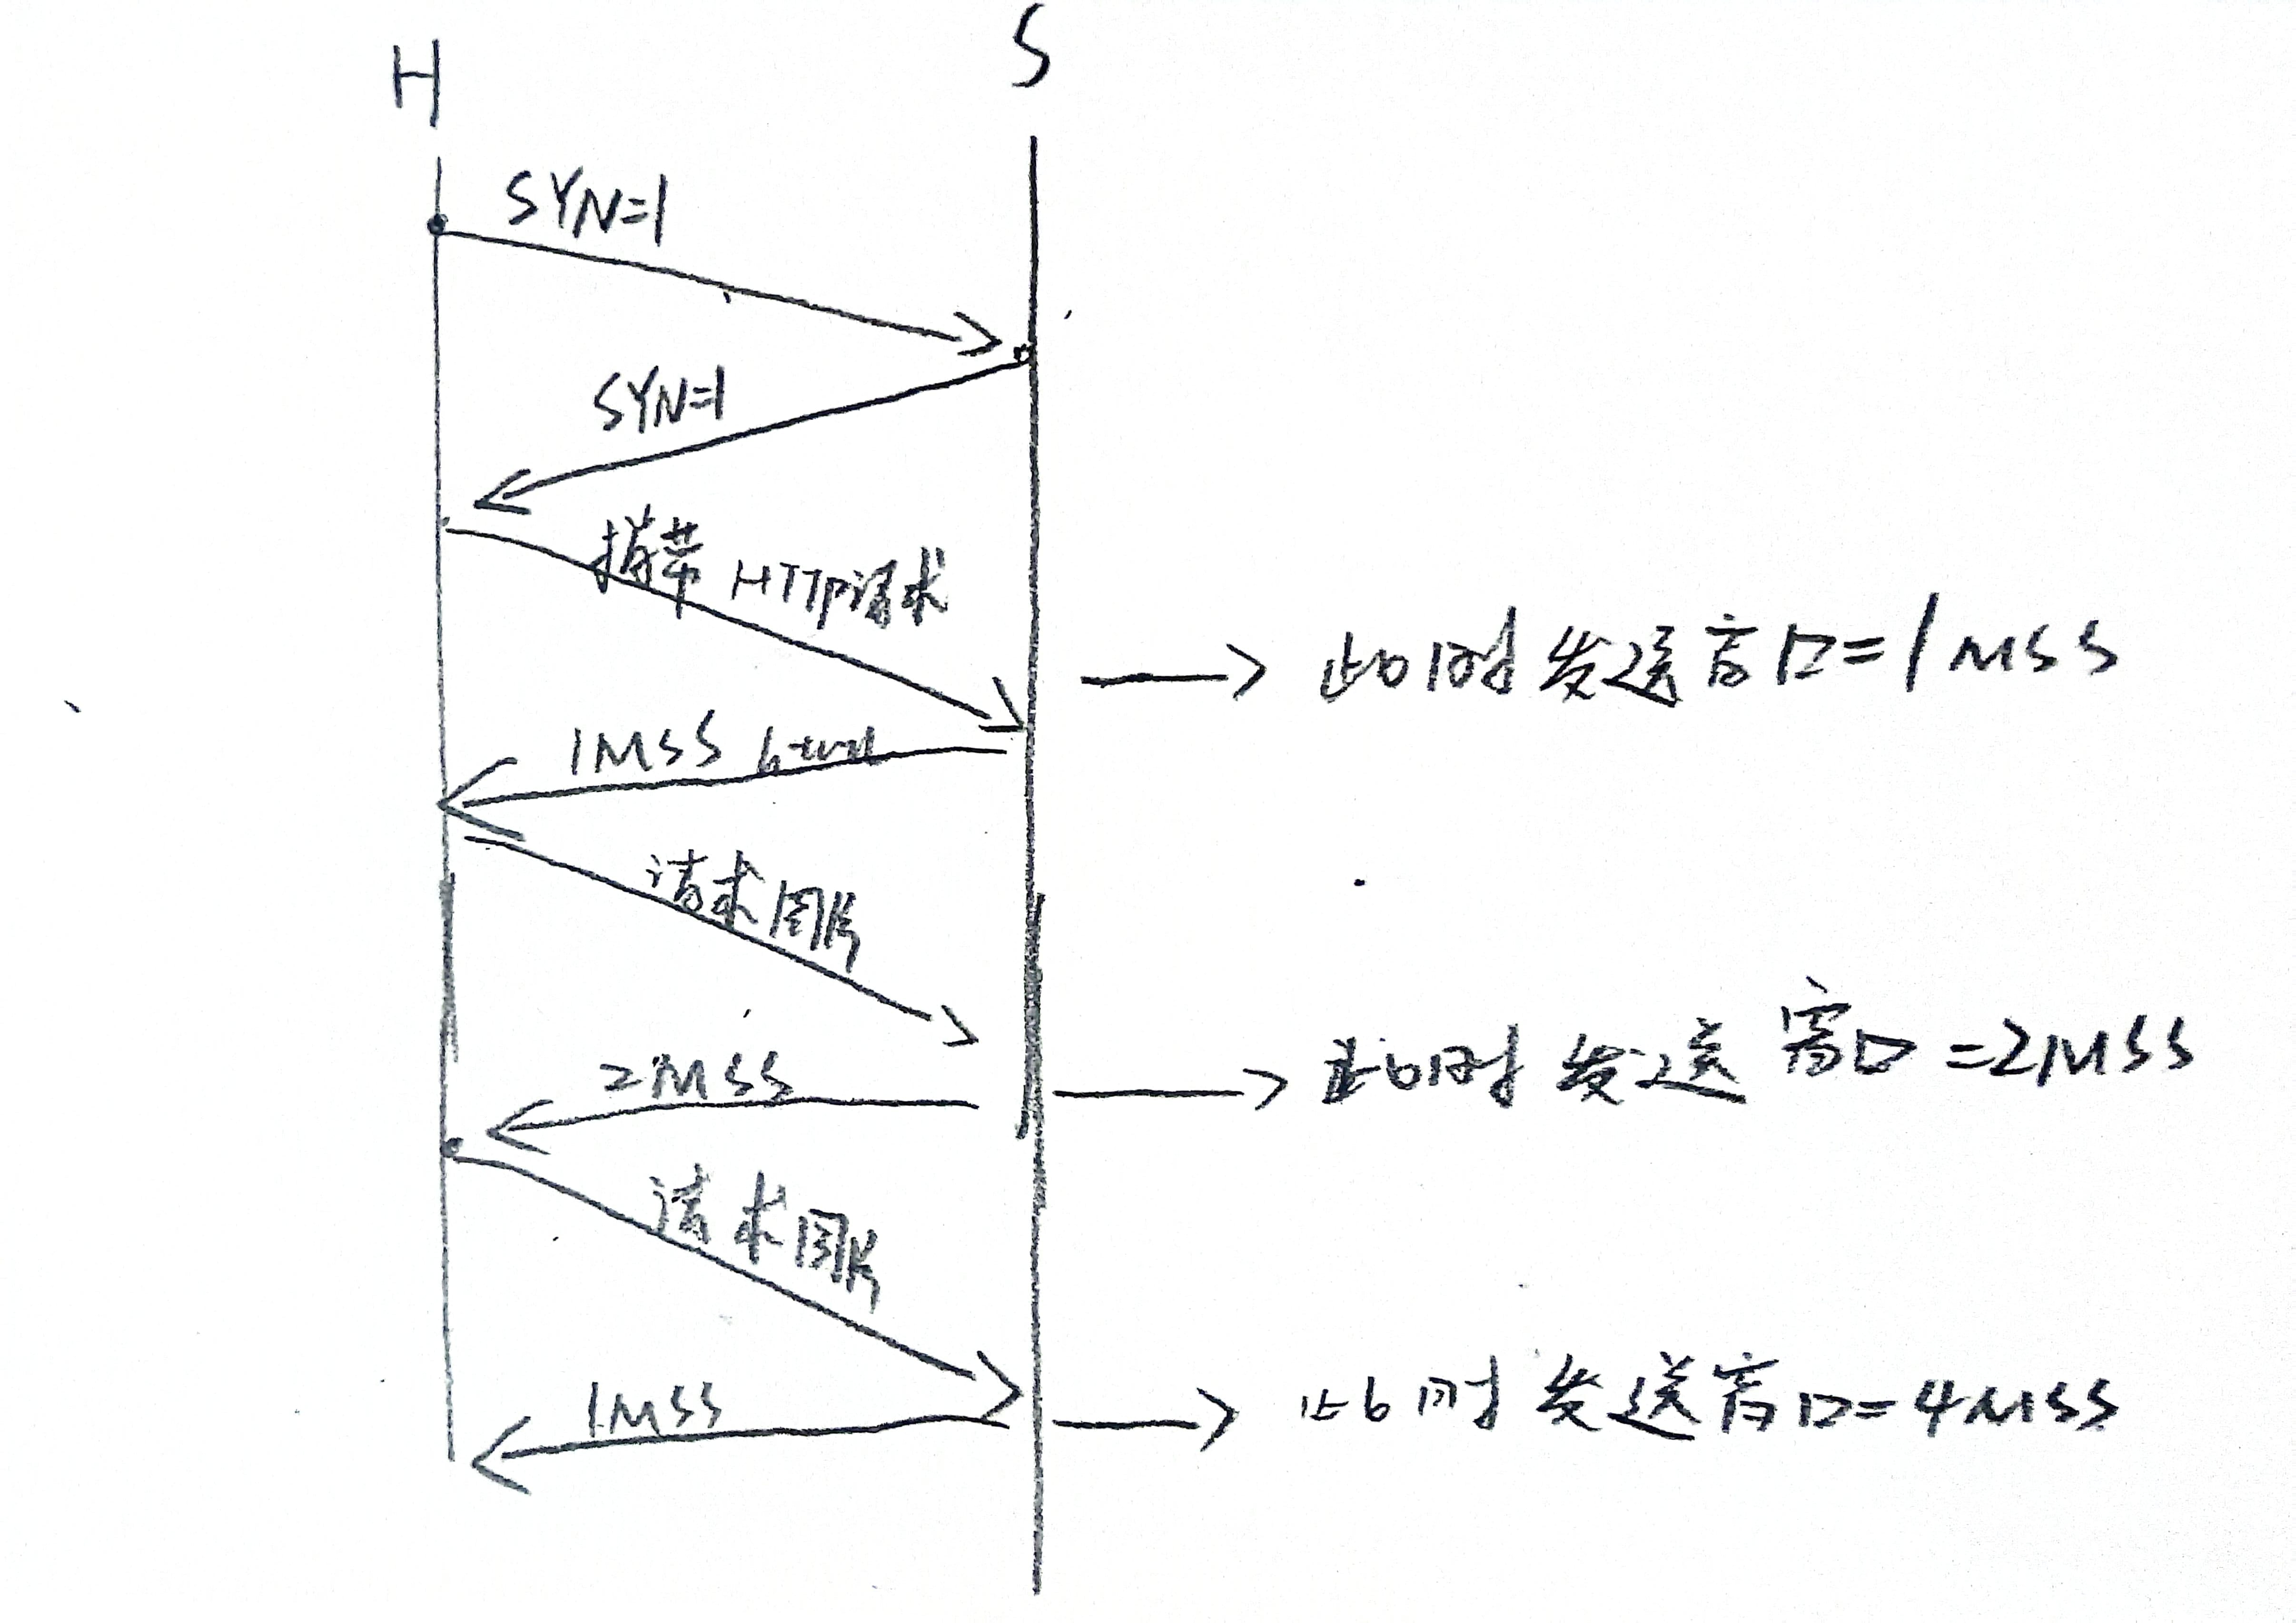 H
S
SYN=1
SYN=1
携带 HTTP请求
此时发送窗口=1MSS
1MSS html
请求图片
2MSS
此时发送窗口=2MSS
请求图片
1MSS
此时发送窗口=4MSS